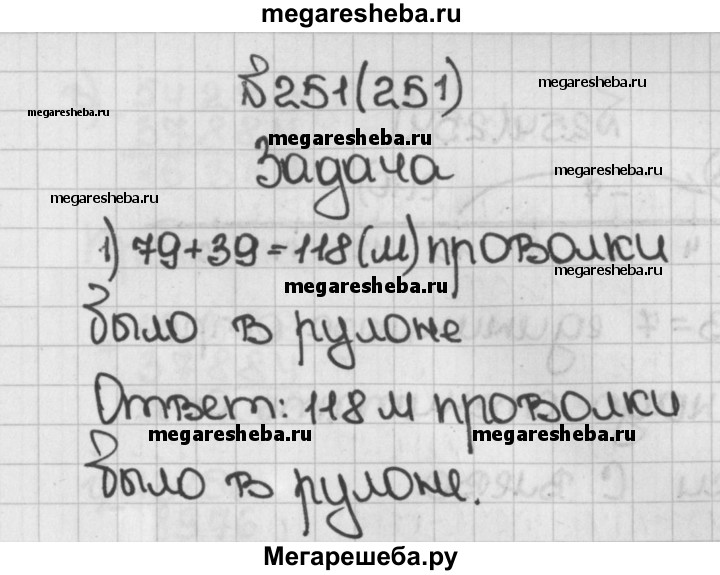 megaresheba.ru
№251(251)
megaresheba.ru
megaresheba.ru
megaresheba.ru
Задача
megaresheba.ru
megaresheba.ru
1) 79+39=118(м) проволки
megaresheba.ru
megaresheba.ru
было в рулоне
Ответ: 118 м проволки
megaresheba.ru megaresheba.ru
было в рулоне.
Мегарешеба.ру